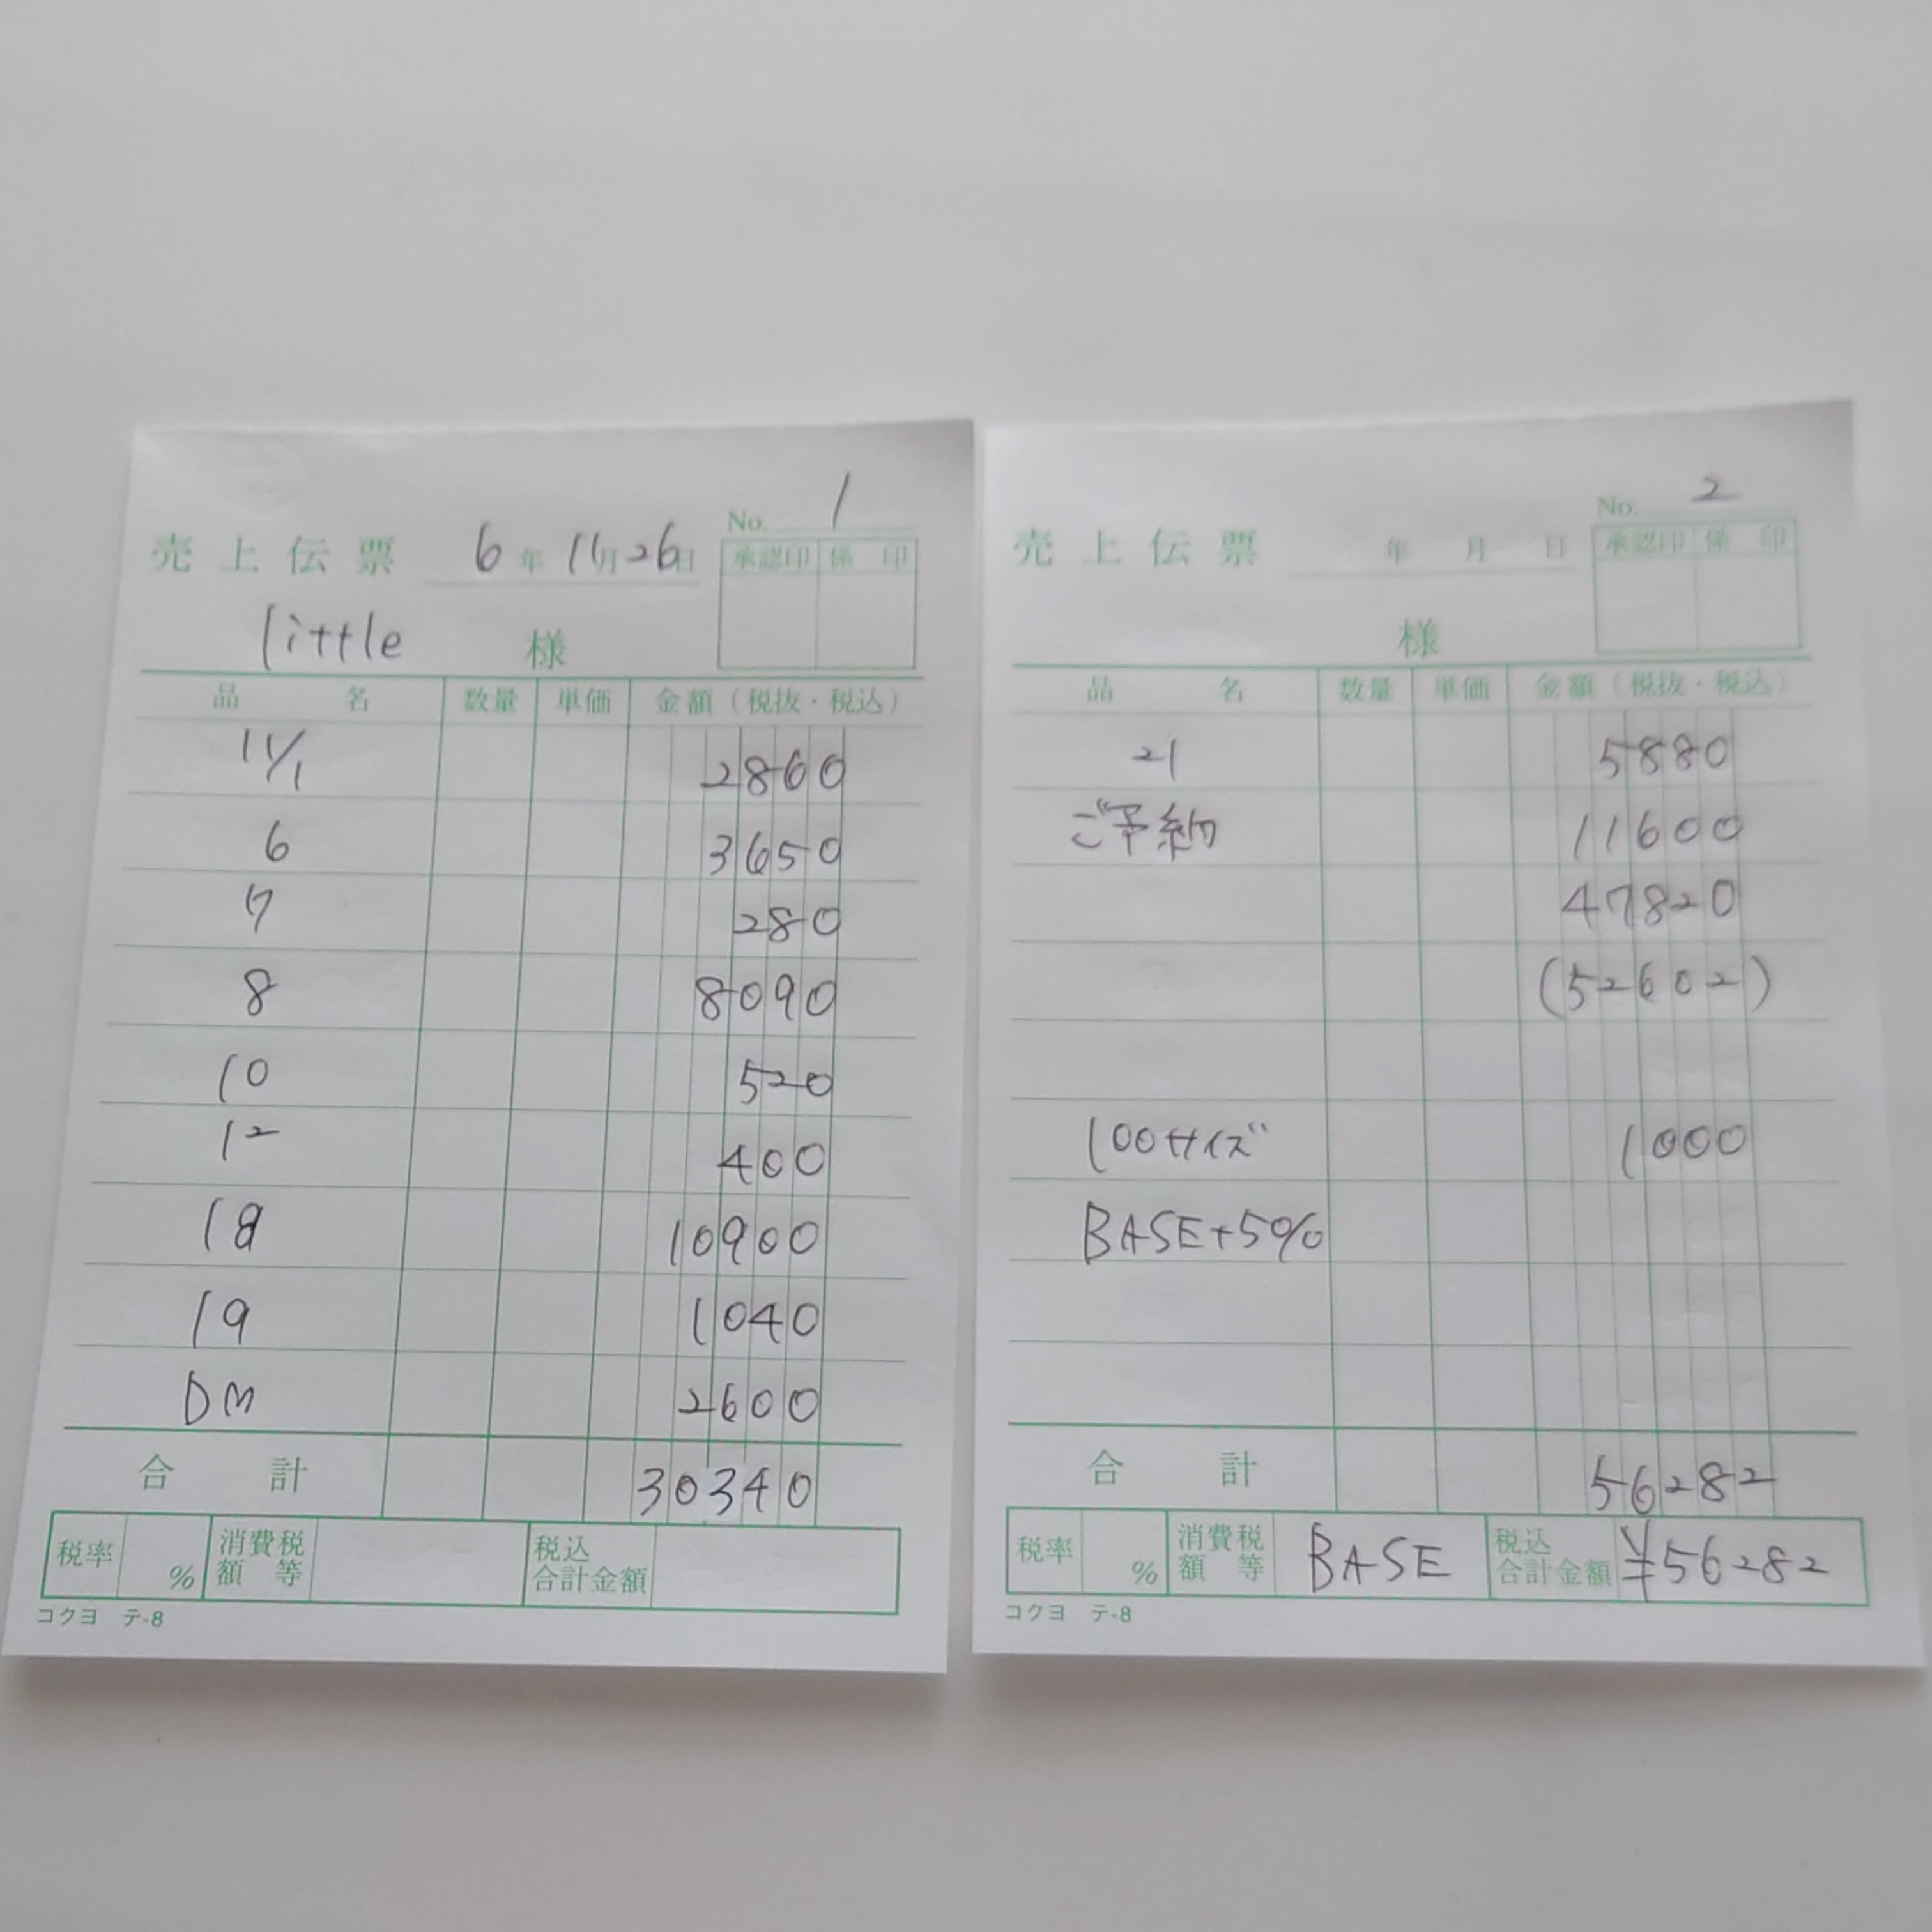 No. 1
売上伝票 6年11月26日
承認印 係印
little 様
品名 数量 単価 金額(税抜・税込)
11/1 2860
6 3650
7 280
8 8090
10 520
12 400
18 10900
19 1040
DM 2600
合計 30340
税率 % 消費税額等 税込合計金額
コクヨ テ-8
No. 2
売上伝票 年 月 日
承認印 係印
様
品名 数量 単価 金額(税抜・税込)
21 5880
ご予約 11600
47820
(52602)
100サイズ 1000
BASE+5%
合計 56282
税率 % 消費税額等 BASE 税込合計金額 ¥56282
コクヨ テ-8